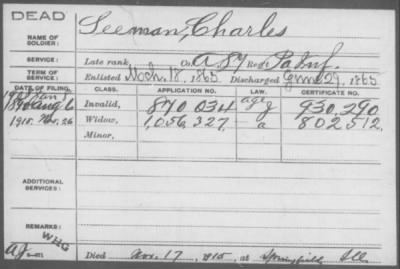 DEAD
NAME OF SOLDIER: Seeman, Charles
SERVICE: Late rank, Co. A 87 Reg't Pa Inf.
TERM OF SERVICE: Enlisted Mch. 18, 1865 Discharged June 29, 1865
DATE OF FILING. CLASS. APPLICATION NO. LAW. CERTIFICATE NO.
1890 Aug 6 Invalid, 870 034 g 930,290
1915 Nov. 26 Widow, 1,056,327 a 802512
Minor,
ADDITIONAL SERVICES:
REMARKS: WHG
Died Nov. 17, 1915, at Springfield Ill